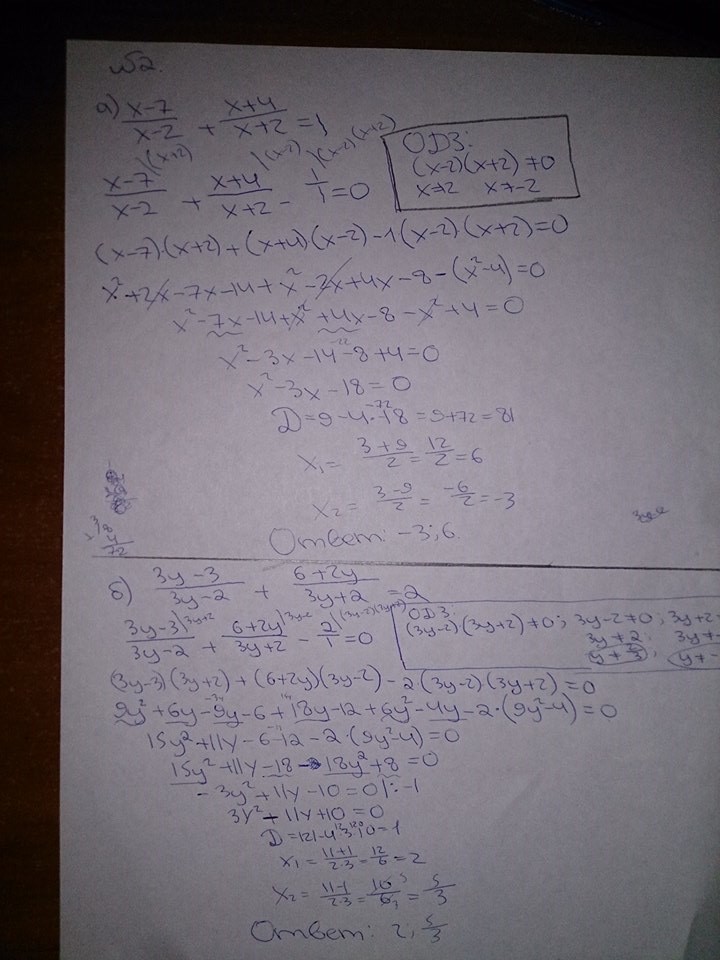 №2.
а) (x-7)/(x-2) + (x+4)/(x+2) = 1
ОДЗ:
(x-2)(x+2) ≠ 0
x≠2 x≠-2
(x-7)/(x-2) |(x+2) + (x+4)/(x+2) |(x-2) - 1/1 |(x-2)(x+2) = 0
(x-7)·(x+2)+(x+4)(x-2)-1(x-2)·(x+2)=0
x²+2x-7x-14+x²-2x+4x-8-(x²-4)=0
x²-7x-14+x²+4x-8-x²+4=0
x²-3x-14-8+4=0
-22
x²-3x-18=0
D=9-4·-18=9+72=81
-72
x₁= (3+9)/2 = 12/2 = 6
x₂= (3-9)/2 = -6/2 = -3
Ответ: -3; 6.
18
4
72
б) (3y-3)/(3y-2) + (6+2y)/(3y+2) = 2
(3y-3)/(3y-2) |3y+2 + (6+2y)/(3y+2) |3y-2 - 2/1 |(3y-2)(3y+2) = 0
ОДЗ:
(3y-2)·(3y+2)≠0; 3y-2≠0; 3y+2
3y≠2; 3y≠-
y≠2/3; y≠-
(3y-3)(3y+2)+(6+2y)(3y-2)-2·(3y-2)(3y+2)=0
9y²+6y-9y-6+18y-12+6y²-4y-2·(9y²-4)=0
15y²+11y-6-12-2·(9y²-4)=0
15y²+11y-18-18y²+8=0
-3y²+11y-10=0|:-1
3y²-11y+10=0
D=121-4·3·10=1
x₁= (11+1)/(2·3) = 12/6 = 2
x₂= (11-1)/(2·3) = 10/6 = 5/3
Ответ: 2; 5/3